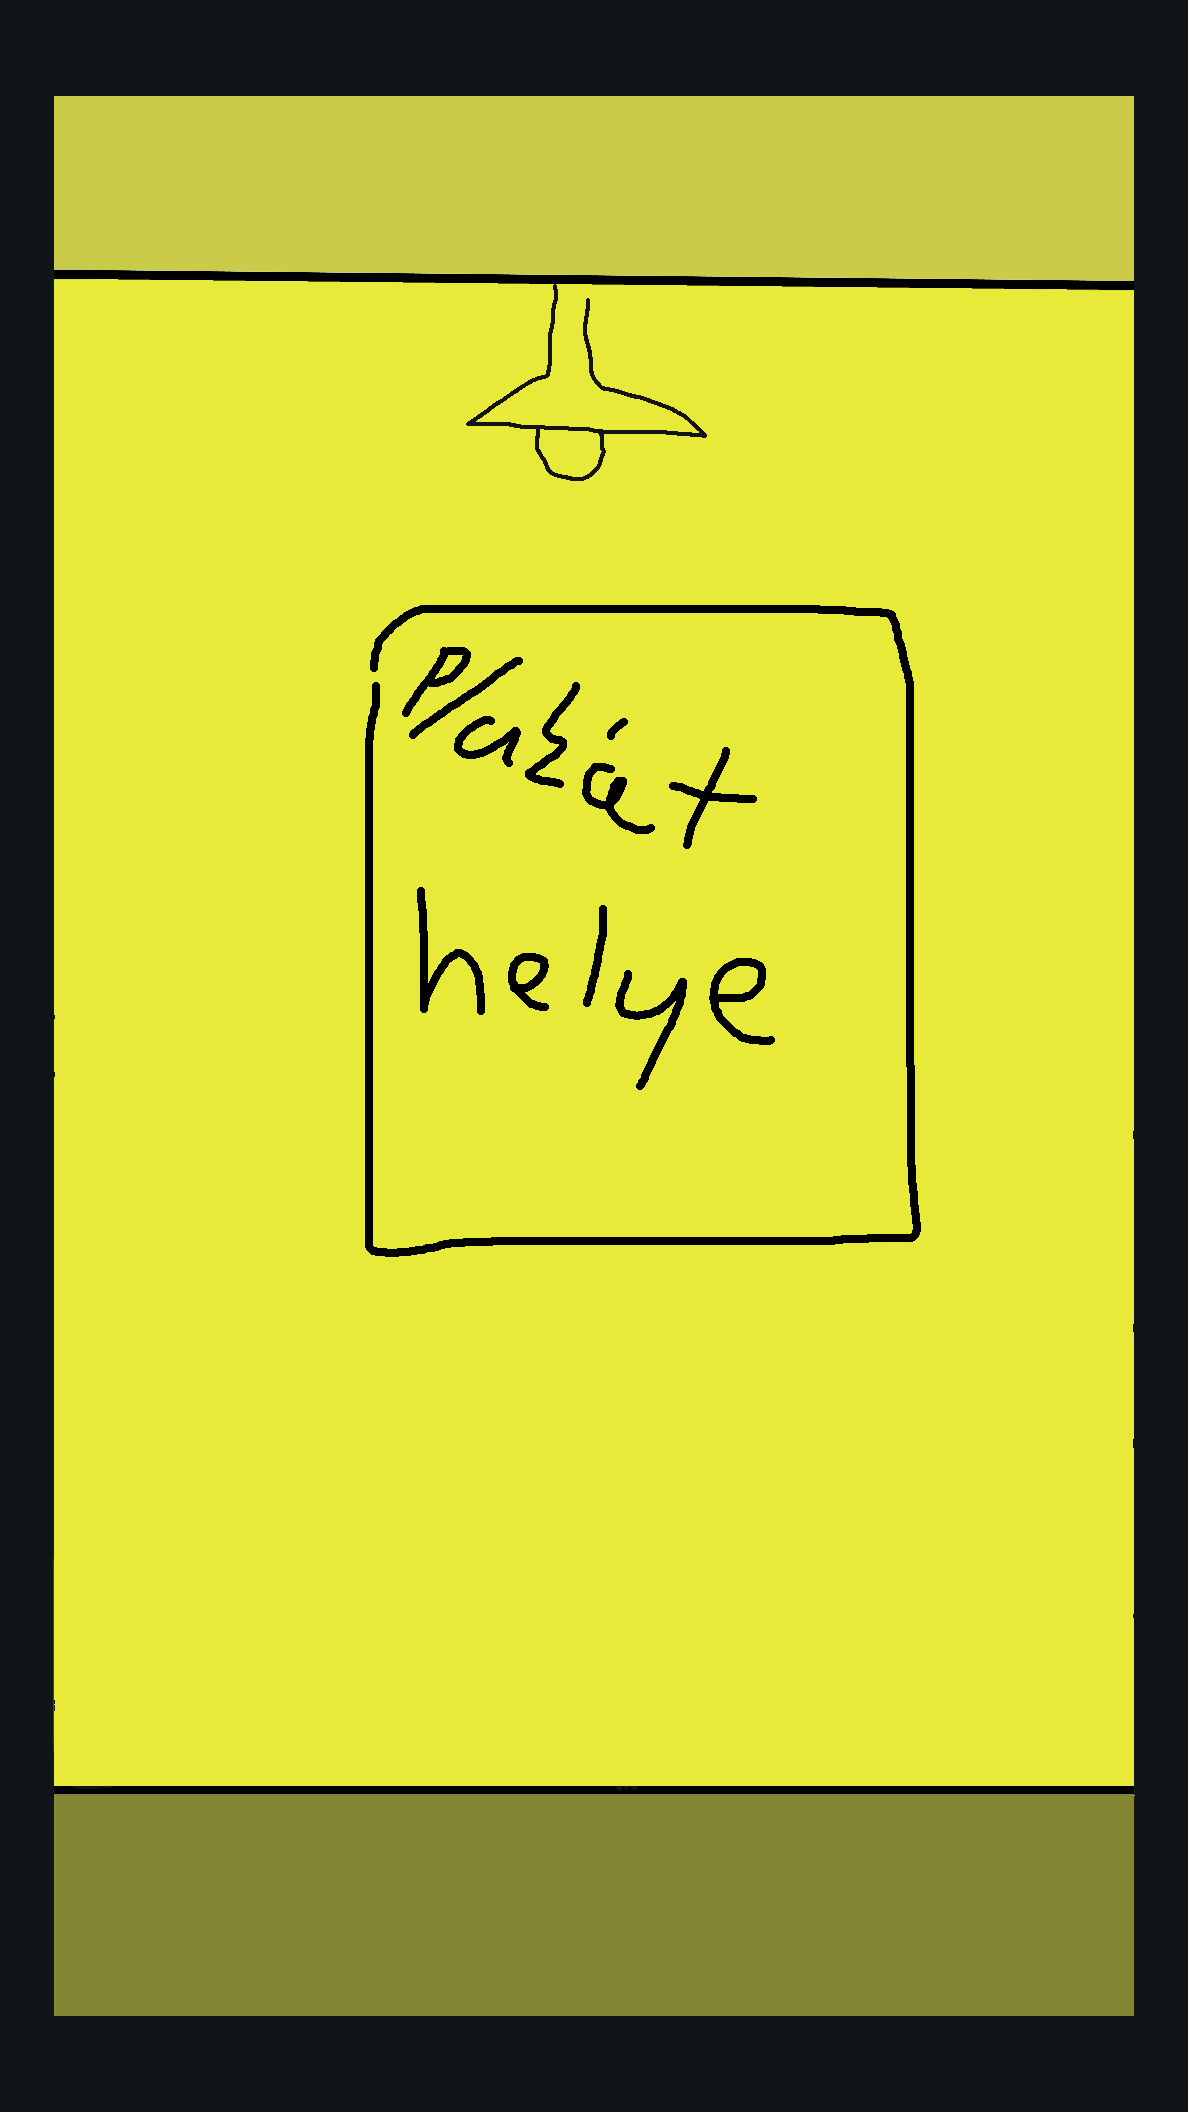 Plakát
helye